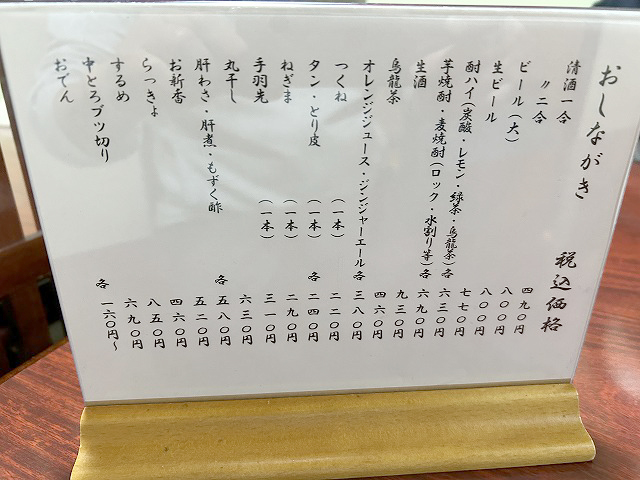 おしながき 税込価格
清酒一合 四九〇円
〃二合 八〇〇円
ビール(大) 八〇〇円
生ビール 七七〇円
酎ハイ(炭酸・レモン・緑茶・烏龍茶)各 六三〇円
芋焼酎・麦焼酎(ロック・水割り等)各 六九〇円
生酒 九三〇円
烏龍茶 四六〇円
オレンジジュース・ジンジャーエール各 三八〇円
つくね (一本) 二二〇円
タン・とり皮 (一本) 各 二四〇円
ねぎま (一本) 二九〇円
手羽先 (一本) 三一〇円
丸干し 六三〇円
肝わさ・肝煮・もずく酢 各 五八〇円
お新香 五二〇円
らっきょ 四六〇円
するめ 八五〇円
中とろブツ切り 六九〇円
おでん 各 一六〇円〜